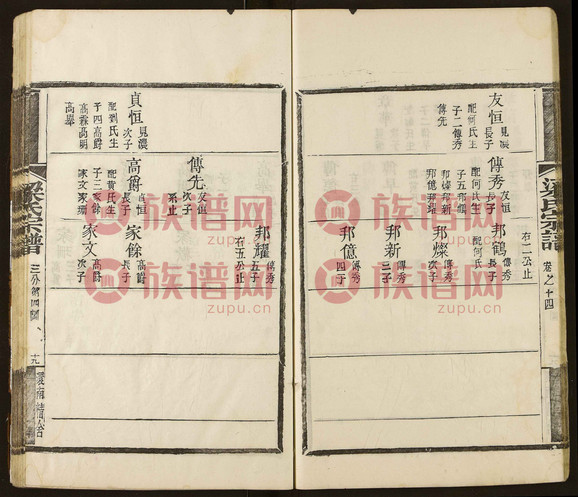 梁氏宗譜
卷之十四
友恒
見濃
長子
配何氏生
子二傳秀
傳先
傳秀
友恒
長子
配何氏生
子五邦鶴
邦燦邦新
邦億邦耀
邦鶴
傳秀
長子
配何氏
右二公止
邦燦
傳秀
次子
邦新
傳秀
三子
邦億
傳秀
四子
邦耀
傳秀
五子
右五公止
傳先
友恒
次子
系止
貞恒
見濃
次子
配劉氏生
子四高爵
高霖高明
高舉
高爵
貞恒
長子
配黃氏生
子三家餘
家文家珊
家餘
高爵
長子
家文
高爵
次子
梁氏宗譜
三公第四關
十九
族谱网
zupu.cn
族谱网
zupu.cn
族谱网
zupu.cn
族谱网
zupu.cn